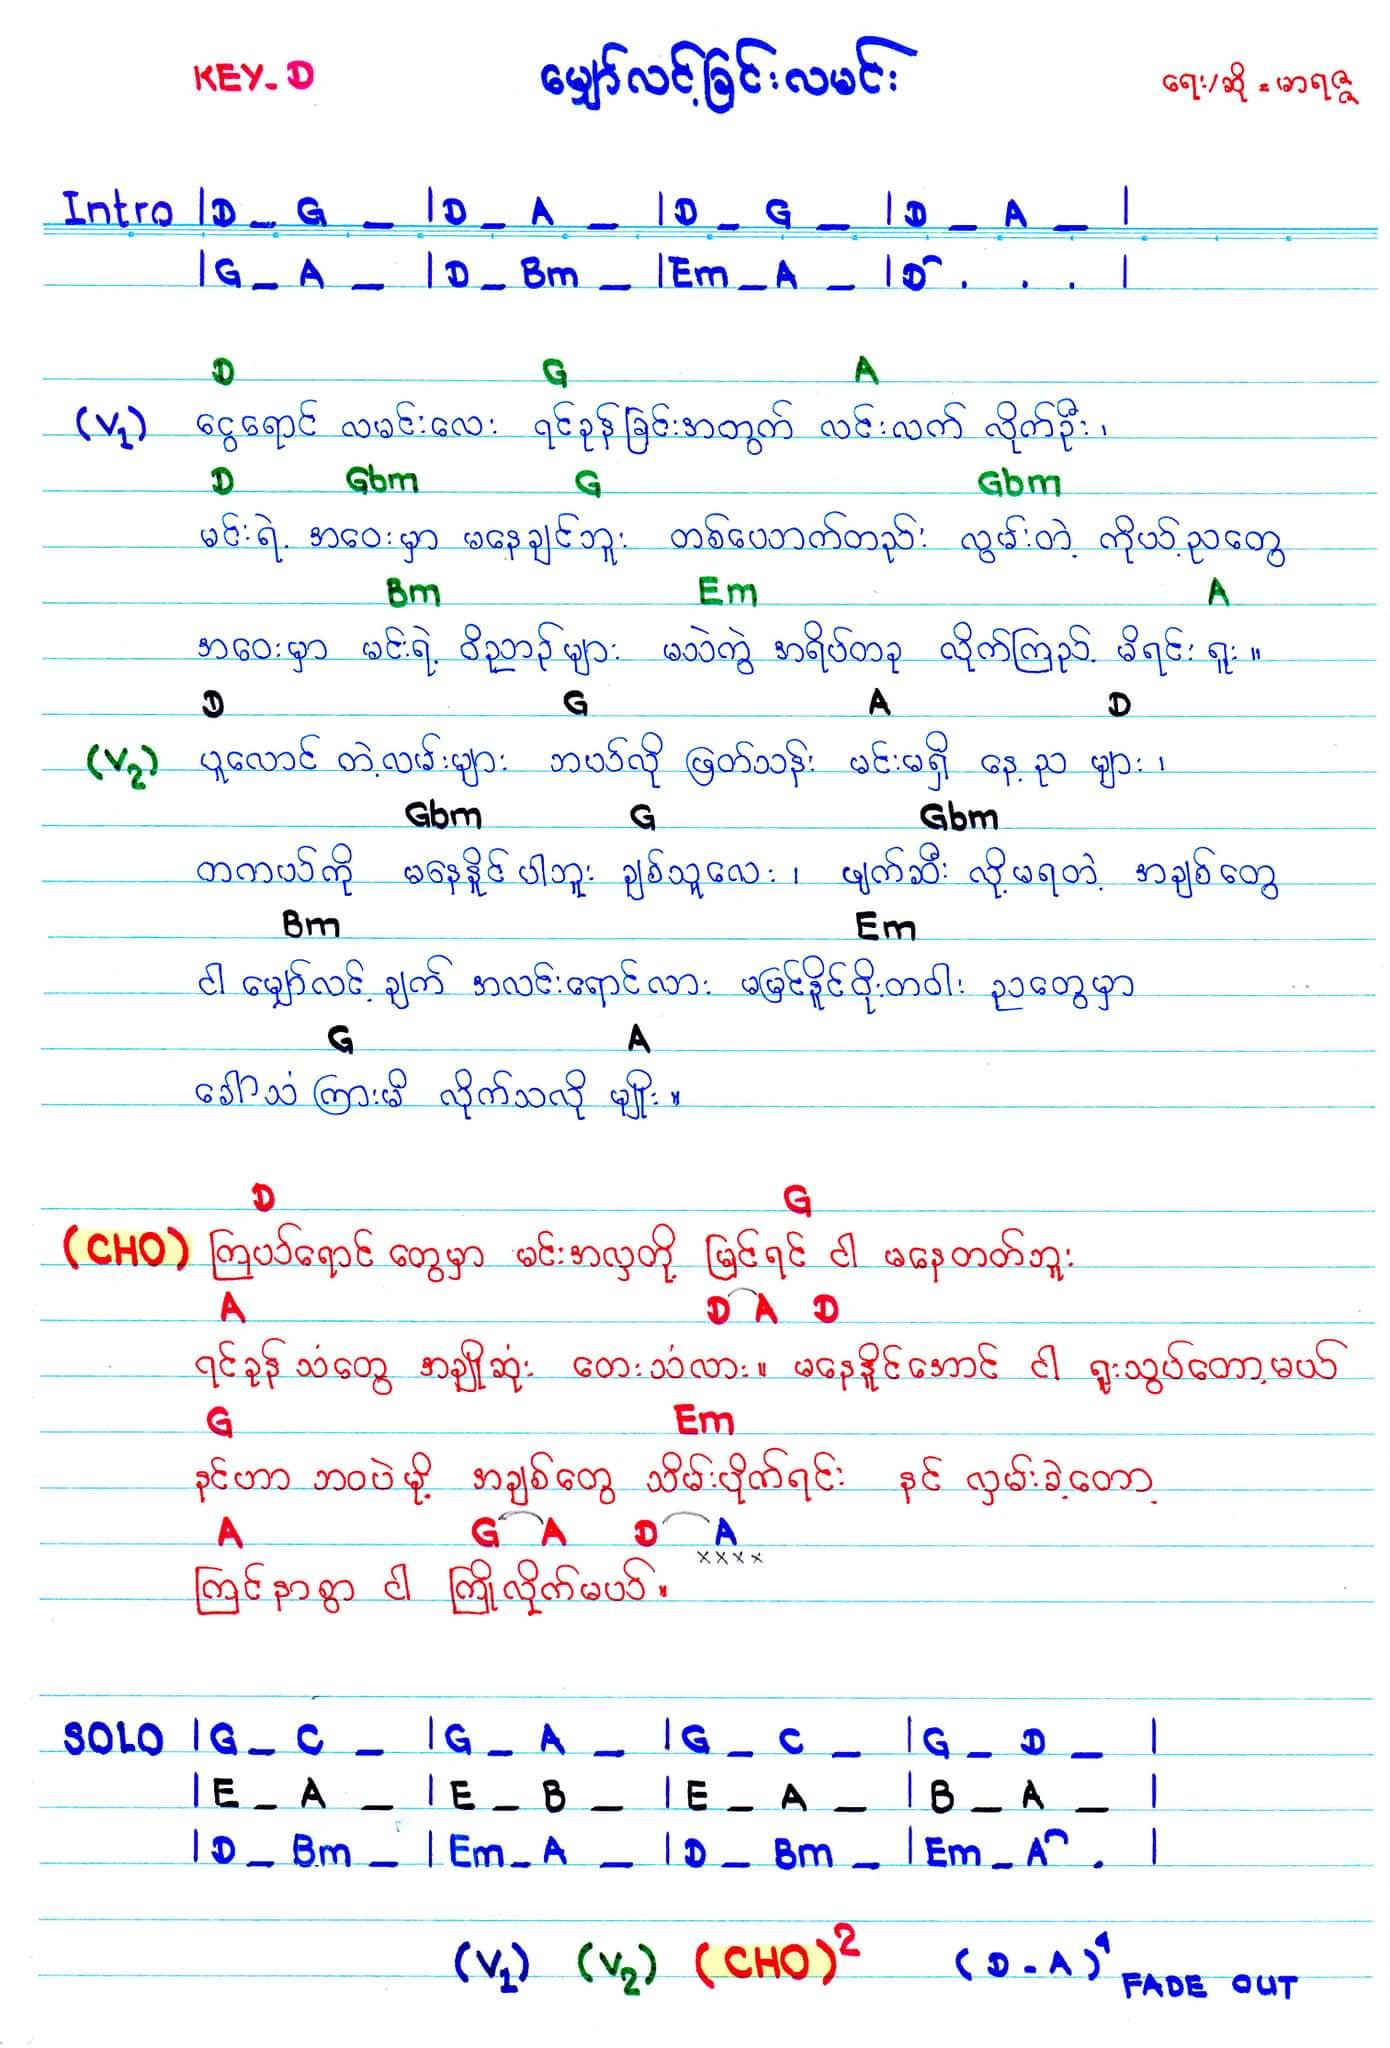 KEY-D မျှော်လင့်ခြင်းလမင်း ရေး/ဆို = မာရဇ္ဇ
Intro |D _ G _ |D _ A _ |D _ G _ |D _ A _ |
|G _ A _ |D _ Bm _ |Em _ A _ |D . . . |
D G A
(V1) ငွေရောင် လမင်းလေး ရင်ခုန်ခြင်းအတွက် လင်းလက် လိုက်ဦး၊
D Gbm G Gbm
မင်းရဲ့ အဝေးမှာ မနေချင်ဘူး တစ်ယောက်တည်း လွမ်းတဲ့ ကိုယ့်ညတွေ
Bm Em A
အဝေးမှာ မင်းရဲ့ ဝိညာဉ်များ မသဲကွဲ အရိပ်တခု လိုက်ကြည့် မိရင်း ရူး။
D G A D
(V2) ပူလောင် တဲ့လမ်းများ ဘယ်လို ဖြတ်သန်း မင်းမရှိ နေ့ည များ၊
Gbm G Gbm
တကယ်ကို မနေနိုင်ပါဘူး ချစ်သူလေး၊ ဖျက်ဆီး လို့မရတဲ့ အချစ်တွေ
Bm Em
ငါ မျှော်လင့်ချက် အလင်းရောင်လား မမြင်နိုင်ဖိုးတဝါး ညတွေမှာ
G A
ခေါ်သံ ကြားမိ လိုက်သလို မျိုး။
D G
(CHO) ကြယ်ရောင် တွေမှာ မင်းအလှတို့ မြင်ရင် ငါ မနေတတ်ဘူး
A D A D
ရင်ခုန်သံတွေ အချိုဆုံး တေးသံလား။ မနေနိုင်အောင် ငါ ရူးသွပ်တော့မယ်
G Em
နင်ဟာ ဘဝပဲမို့ အချစ်တွေ သိမ်းပိုက်ရင်း နင် လှမ်းခဲ့တော့
A G A D A
xxxx
ကြင်နာစွာ ငါ ကြိုလိုက်မယ်။
SOLO |G _ C _ |G _ A _ |G _ C _ |G _ D _ |
|E _ A _ |E _ B _ |E _ A _ |B _ A _ |
|D _ Bm _ |Em _ A _ |D _ Bm _ |Em _ A . |
(V1) (V2) (CHO)2 (D-A)4 FADE OUT